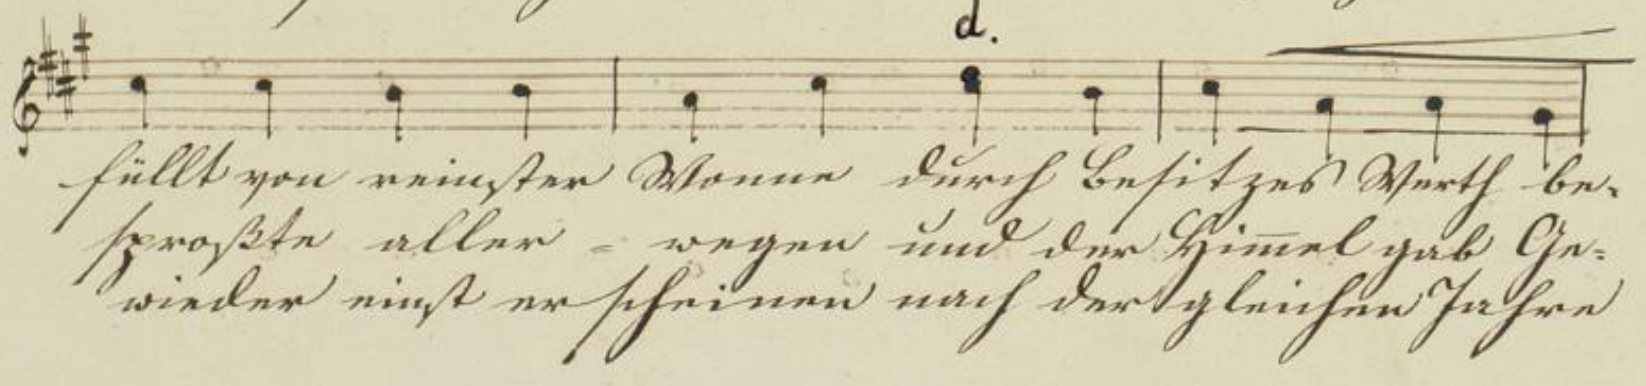 d.
füllt von reinster Wonne durch Besitzes Werth be-
sproßte aller - wegen und der Him̄el gab Ge-
wieder einst erscheinen nach der gleichen Jahre